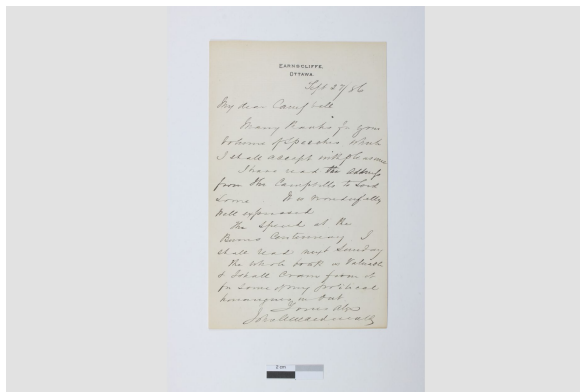 EARNSCLIFFE,
OTTAWA.
Sept 27/86
My dear Campbell
Many thanks for your
volume of Speeches which
I shall accept with pleasure
I have read the address
from the Campbells to Lord
Lorne It is wonderfully
well expressed
The speech at the
Burns Centenary I
shall read next Sunday
The whole book is valuable
& I shall cram from it
for some of my political
harangues in Oct
Yours always
John A Macdonald
2 cm